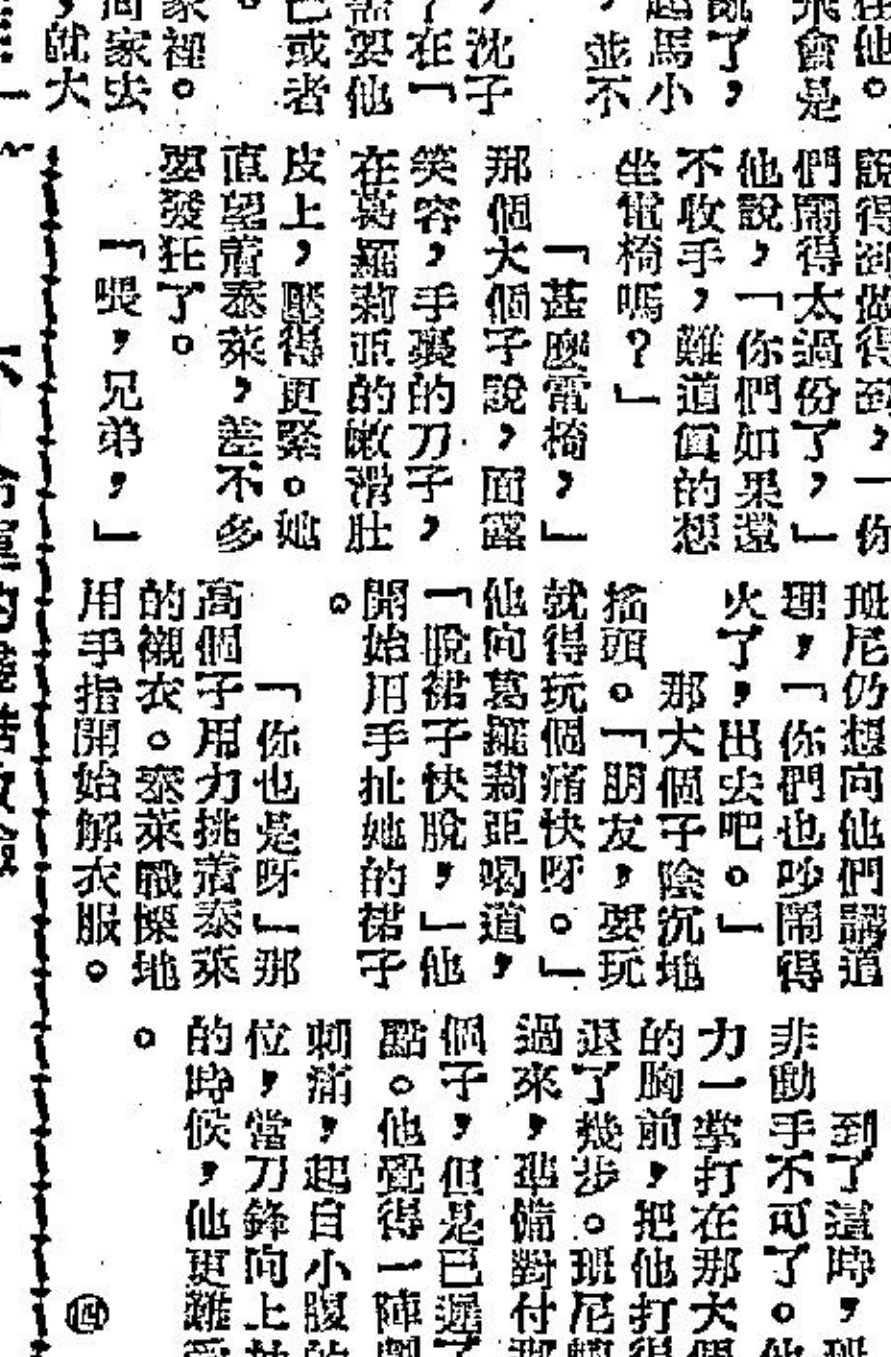 在他。
飛會是
亂了，
起馬小
，並不
，沈子
了在「
需要他
己或者
。
家裡。
同家去
，就大
說得到做得到，一你
們鬧得太過份了，」
他說，「你們如果還
不收手，難道真的想
坐電椅嗎？」
「甚麼電椅，」
那個大個子說，面露
笑容，手裏的刀子，
在葛羅莉亞的嫩滑肚
皮上，壓得更緊。她
直望着泰萊，差不多
要發狂了。
「喂，兄弟，」
班尼仍想向他們講道
理，「你們也吵鬧得
火了，出去吧。」
那大個子陰沉地
搖頭。「朋友，要玩
就得玩個痛快呀。」
他向葛羅莉亞喝道，
「脫裙子快脫，」他
開始用手扯她的裙子
。
「你也是呀」那
高個子用力挑着泰萊
的襯衣。泰萊戰慄地
用手指開始解衣服。
到了這時，班
非動手不可了。他
力一掌打在那大個
的胸前，把他打得
退了幾步。班尼轉
過來，準備對付那
個子，但是已遲了
點。他覺得一陣劇
刺痛，起自小腹的
位，當刀鋒向上
的時候，他更難受
。
⑭